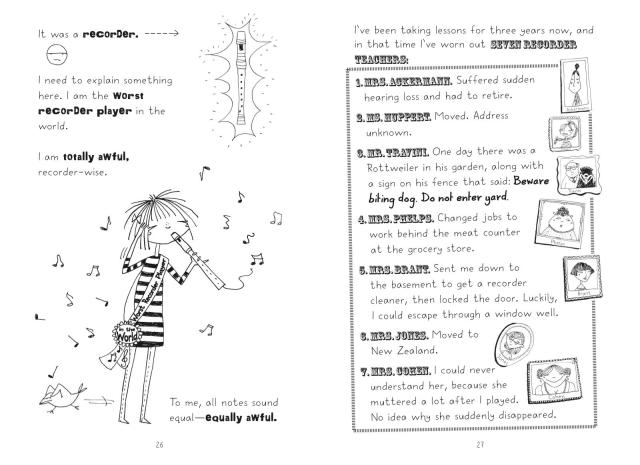 It was a recorder.
I need to explain something
here. I am the worst
recorder player in the
world.
I am totally awful,
recorder-wise.
Worst Recorder Player
in the
World
To me, all notes sound
equal—equally awful.
26
I've been taking lessons for three years now, and
in that time I've worn out SEVEN RECORDER
TEACHERS:
1. MRS. ACKERMANN. Suffered sudden
hearing loss and had to retire.
2. MS. HUPPERT. Moved. Address
unknown.
3. MR. TRAVINI. One day there was a
Rottweiler in his garden, along with
a sign on his fence that said: Beware
biting dog. Do not enter yard.
4. MRS. PHELPS. Changed jobs to
work behind the meat counter
at the grocery store.
5. MRS. BRANT. Sent me down to
the basement to get a recorder
cleaner, then locked the door. Luckily,
I could escape through a window well.
6. MRS. JONES. Moved to
New Zealand.
7. MRS. COHEN. I could never
understand her, because she
muttered a lot after I played.
No idea why she suddenly disappeared.
27